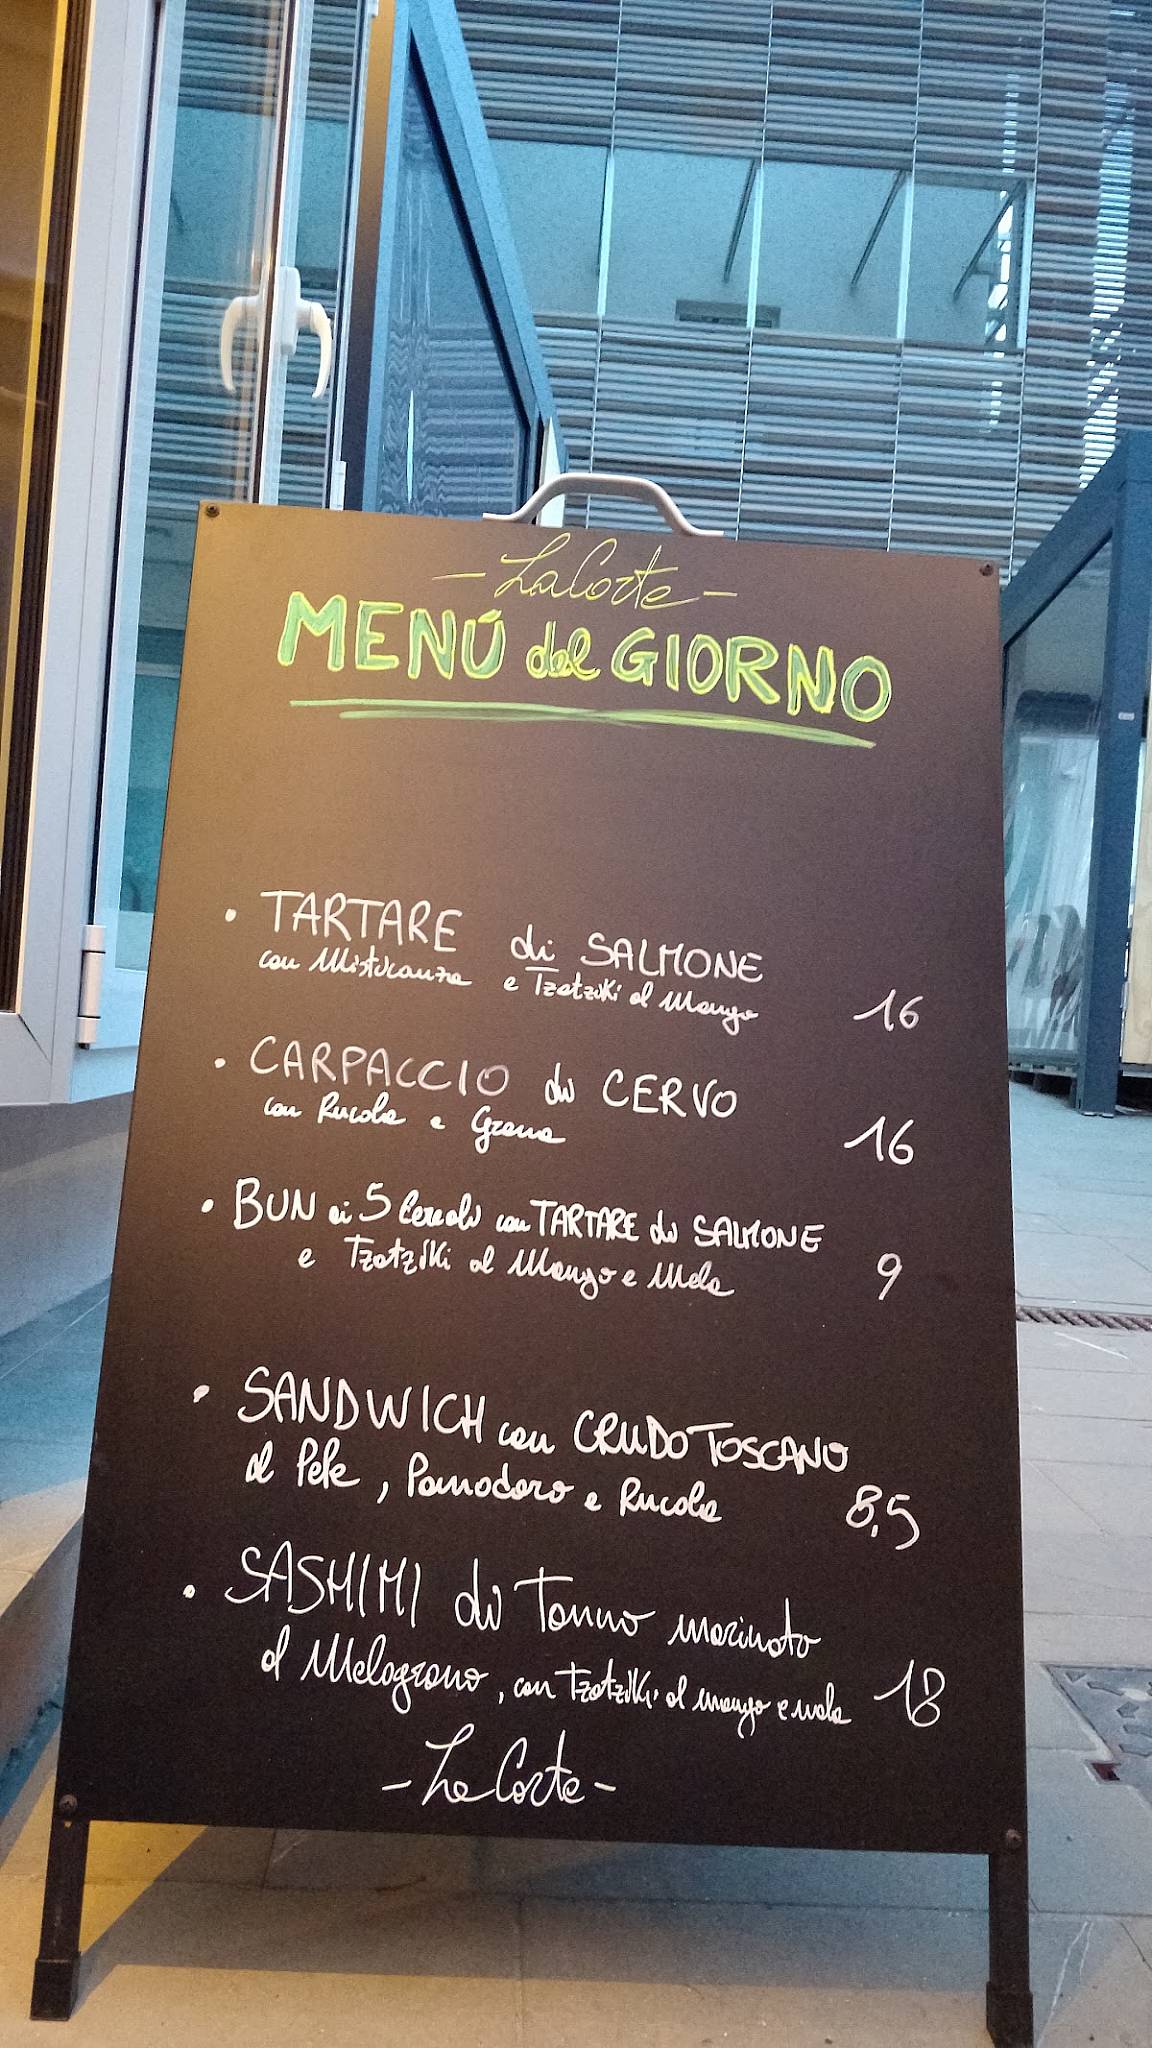 - La Corte -
MENÚ del GIORNO
• TARTARE di SALMONE
con Misticanza e Tzatziki al Mango 16
• CARPACCIO di CERVO
con Rucola e Grana 16
• BUN ai 5 Cereali con TARTARE di SALMONE
e Tzatziki al Mango e Mela 9
• SANDWICH con CRUDO TOSCANO
al Pepe, Pomodoro e Rucola 8,5
• SASHIMI di Tonno marinato
al Melograno, con Tzatziki al mango e mela 18
- La Corte -